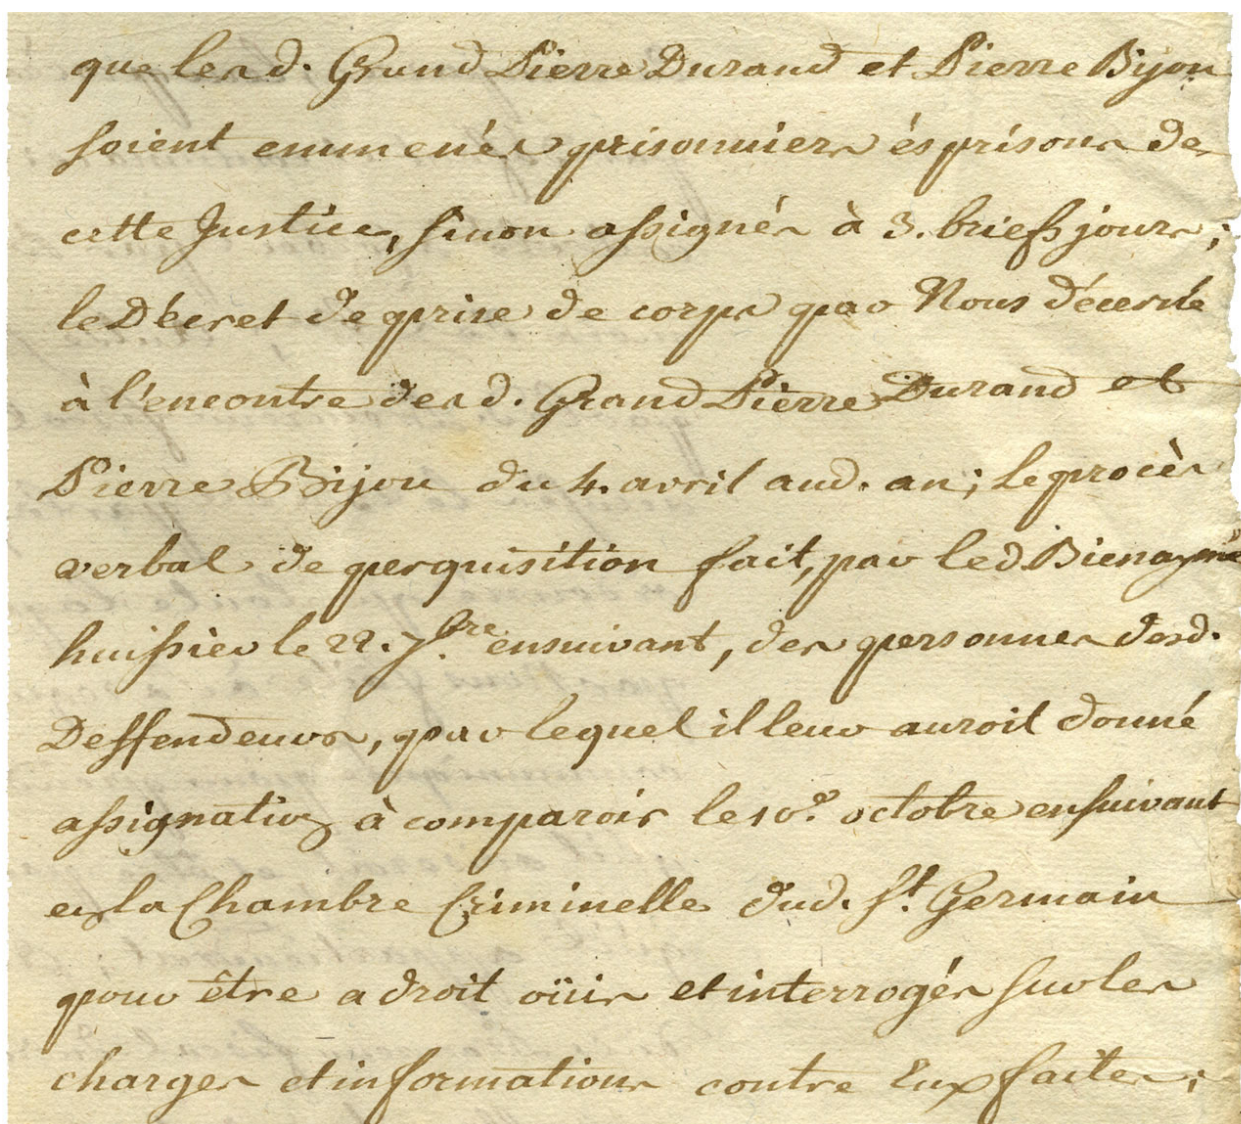 que les d. Grand Pierre Durand et Pierre Bijou
soient emmenés prisonniers és prisons de
cette Justice, sinon assignés à 3. briefs jours;
le Décret de prise de corps par Nous décerné
à l'encontre des d. Grand Pierre Durand et
Pierre Bijou du 4. avril aud. an; le procès
verbal de perquisition fait, par led. Bienaymé
huissier le 22. 7.bre ensuivant, des personnes desd.
Deffendeurs, par lequel il leur auroit donné
assignation à comparoir le 10.e octobre ensuivant
en la Chambre Criminelle dud. St. Germain
pour être a droit oüis et interrogés sur les
charges et informations contre Eux faites;